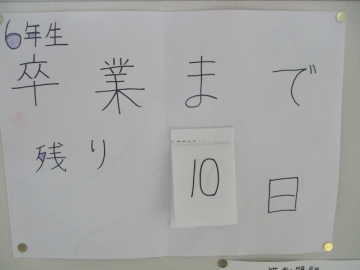 6年生
卒業まで
残り 10 日